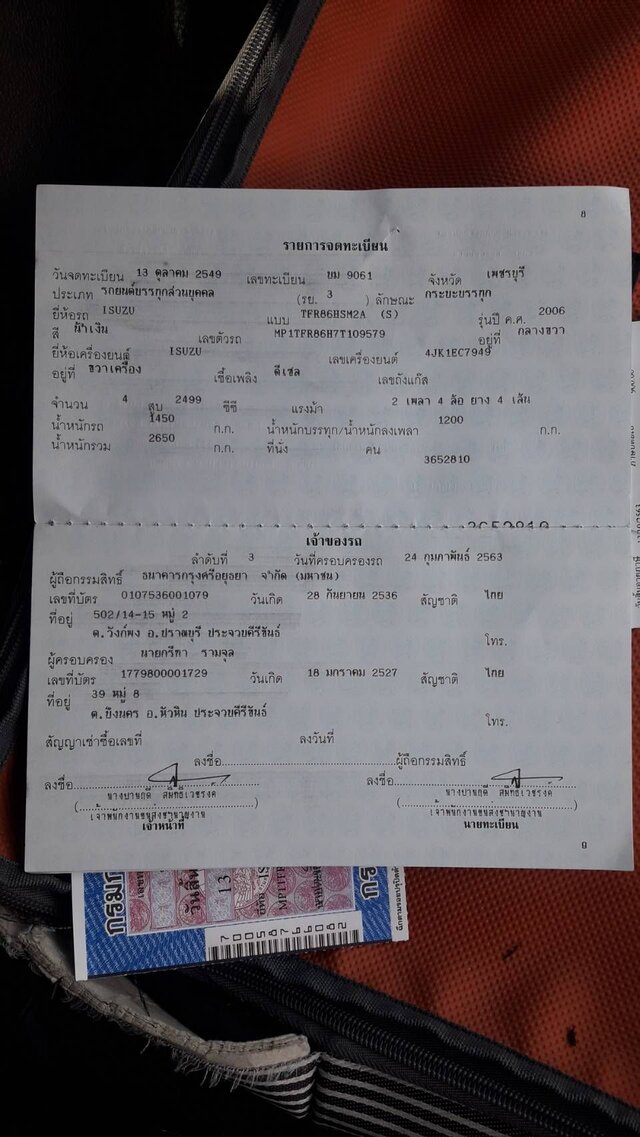 8
รายการจดทะเบียน
วันจดทะเบียน 13 ตุลาคม 2549 เลขทะเบียน บม 9061 จังหวัด เพชรบุรี
ประเภท รถยนต์บรรทุกส่วนบุคคล (รย. 3 ) ลักษณะ กระบะบรรทุก
ยี่ห้อรถ ISUZU แบบ TFR86HSM2A (S) รุ่นปี ค.ศ. 2006
สี น้ำเงิน เลขตัวรถ MP1TFR86H7T109579 อยู่ที่ กลางขวา
ยี่ห้อเครื่องยนต์ ISUZU เลขเครื่องยนต์ 4JK1EC7949
อยู่ที่ ขวาเครื่อง เชื้อเพลิง ดีเซล เลขถังแก๊ส
จำนวน 4 สูบ 2499 ซีซี แรงม้า 2 เพลา 4 ล้อ ยาง 4 เส้น
น้ำหนักรถ 1450 ก.ก. น้ำหนักบรรทุก/น้ำหนักลงเพลา 1200 ก.ก.
น้ำหนักรวม 2650 ก.ก. ที่นั่ง คน
3652810
เจ้าของรถ
ลำดับที่ 3 วันที่ครอบครองรถ 24 กุมภาพันธ์ 2563
ผู้ถือกรรมสิทธิ์ ธนาคารกรุงศรีอยุธยา จำกัด (มหาชน)
เลขที่บัตร 0107536001079 วันเกิด 28 กันยายน 2536 สัญชาติ ไทย
ที่อยู่ 502/14-15 หมู่ 2
ต.วังก์พง อ.ปราณบุรี ประจวบคีรีขันธ์ โทร.
ผู้ครอบครอง นายกรีฑา รามจุล
เลขที่บัตร 1779800001729 วันเกิด 18 มกราคม 2527 สัญชาติ ไทย
ที่อยู่ 39 หมู่ 8
ต.บึงนคร อ.หัวหิน ประจวบคีรีขันธ์ โทร.
สัญญาเช่าซื้อเลขที่ ลงวันที่
ลงชื่อ ผู้ถือกรรมสิทธิ์
ลงชื่อ ลงชื่อ
เจ้าหน้าที่ นายทะเบียน
9
700587766082